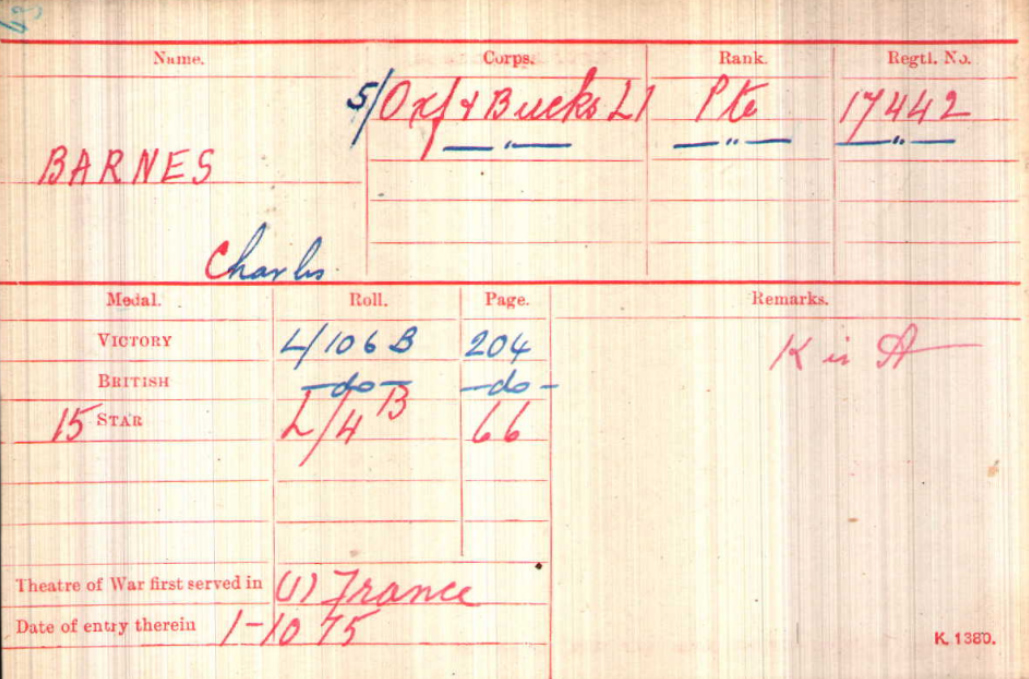 Name. Corps. Rank. Regtl. No.
5/Oxf & Bucks LI Pte 17442
— " — — " — — " —
BARNES
Charles
Medal. Roll. Page. Remarks.
VICTORY L/106 B 204 K in A
BRITISH —do— —do—
15 STAR L/4 B 66
Theatre of War first served in (1) France
Date of entry therein 1-10 15
K. 1380.